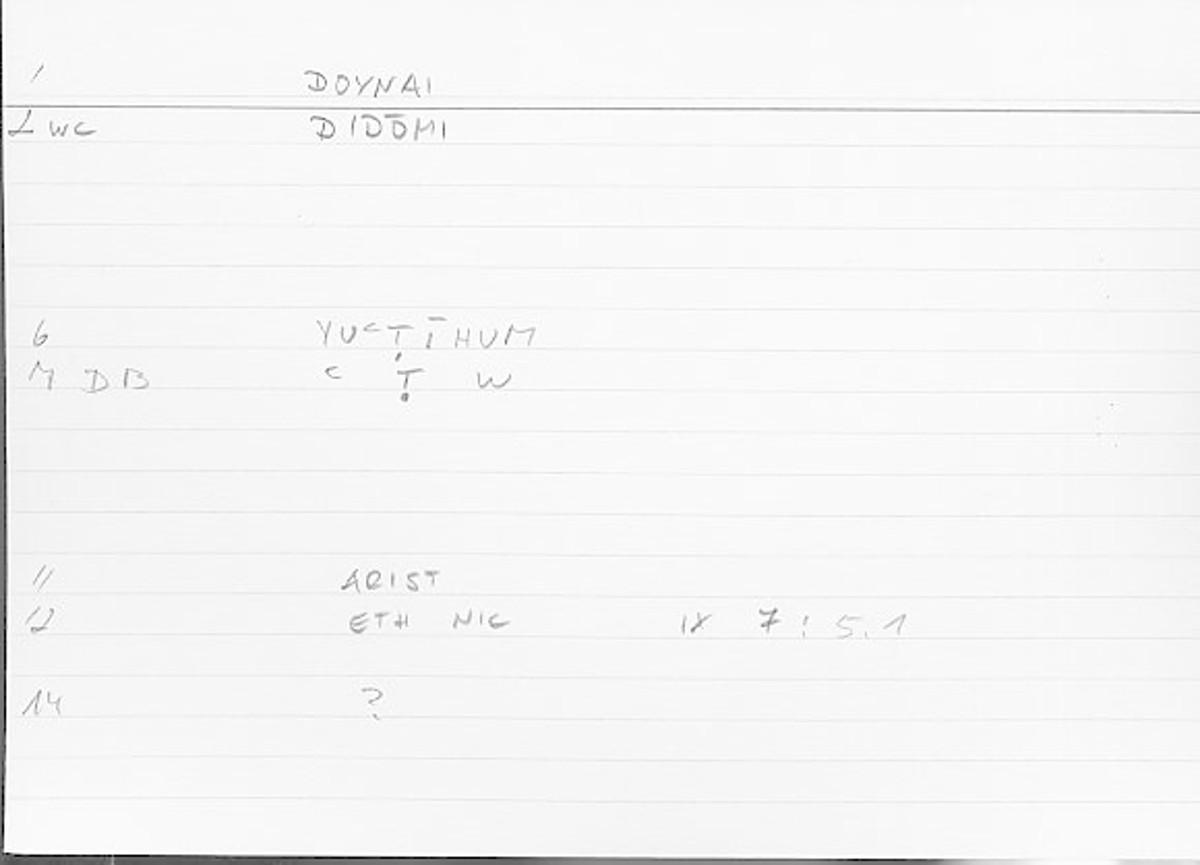 1 DOYNAI
L WC DIDŌMI
6 YUᶜṬĪHUM
M DB ᶜ Ṭ W
11 ARIST
12 ETH NIC IX 7 : 5.1
14 ?